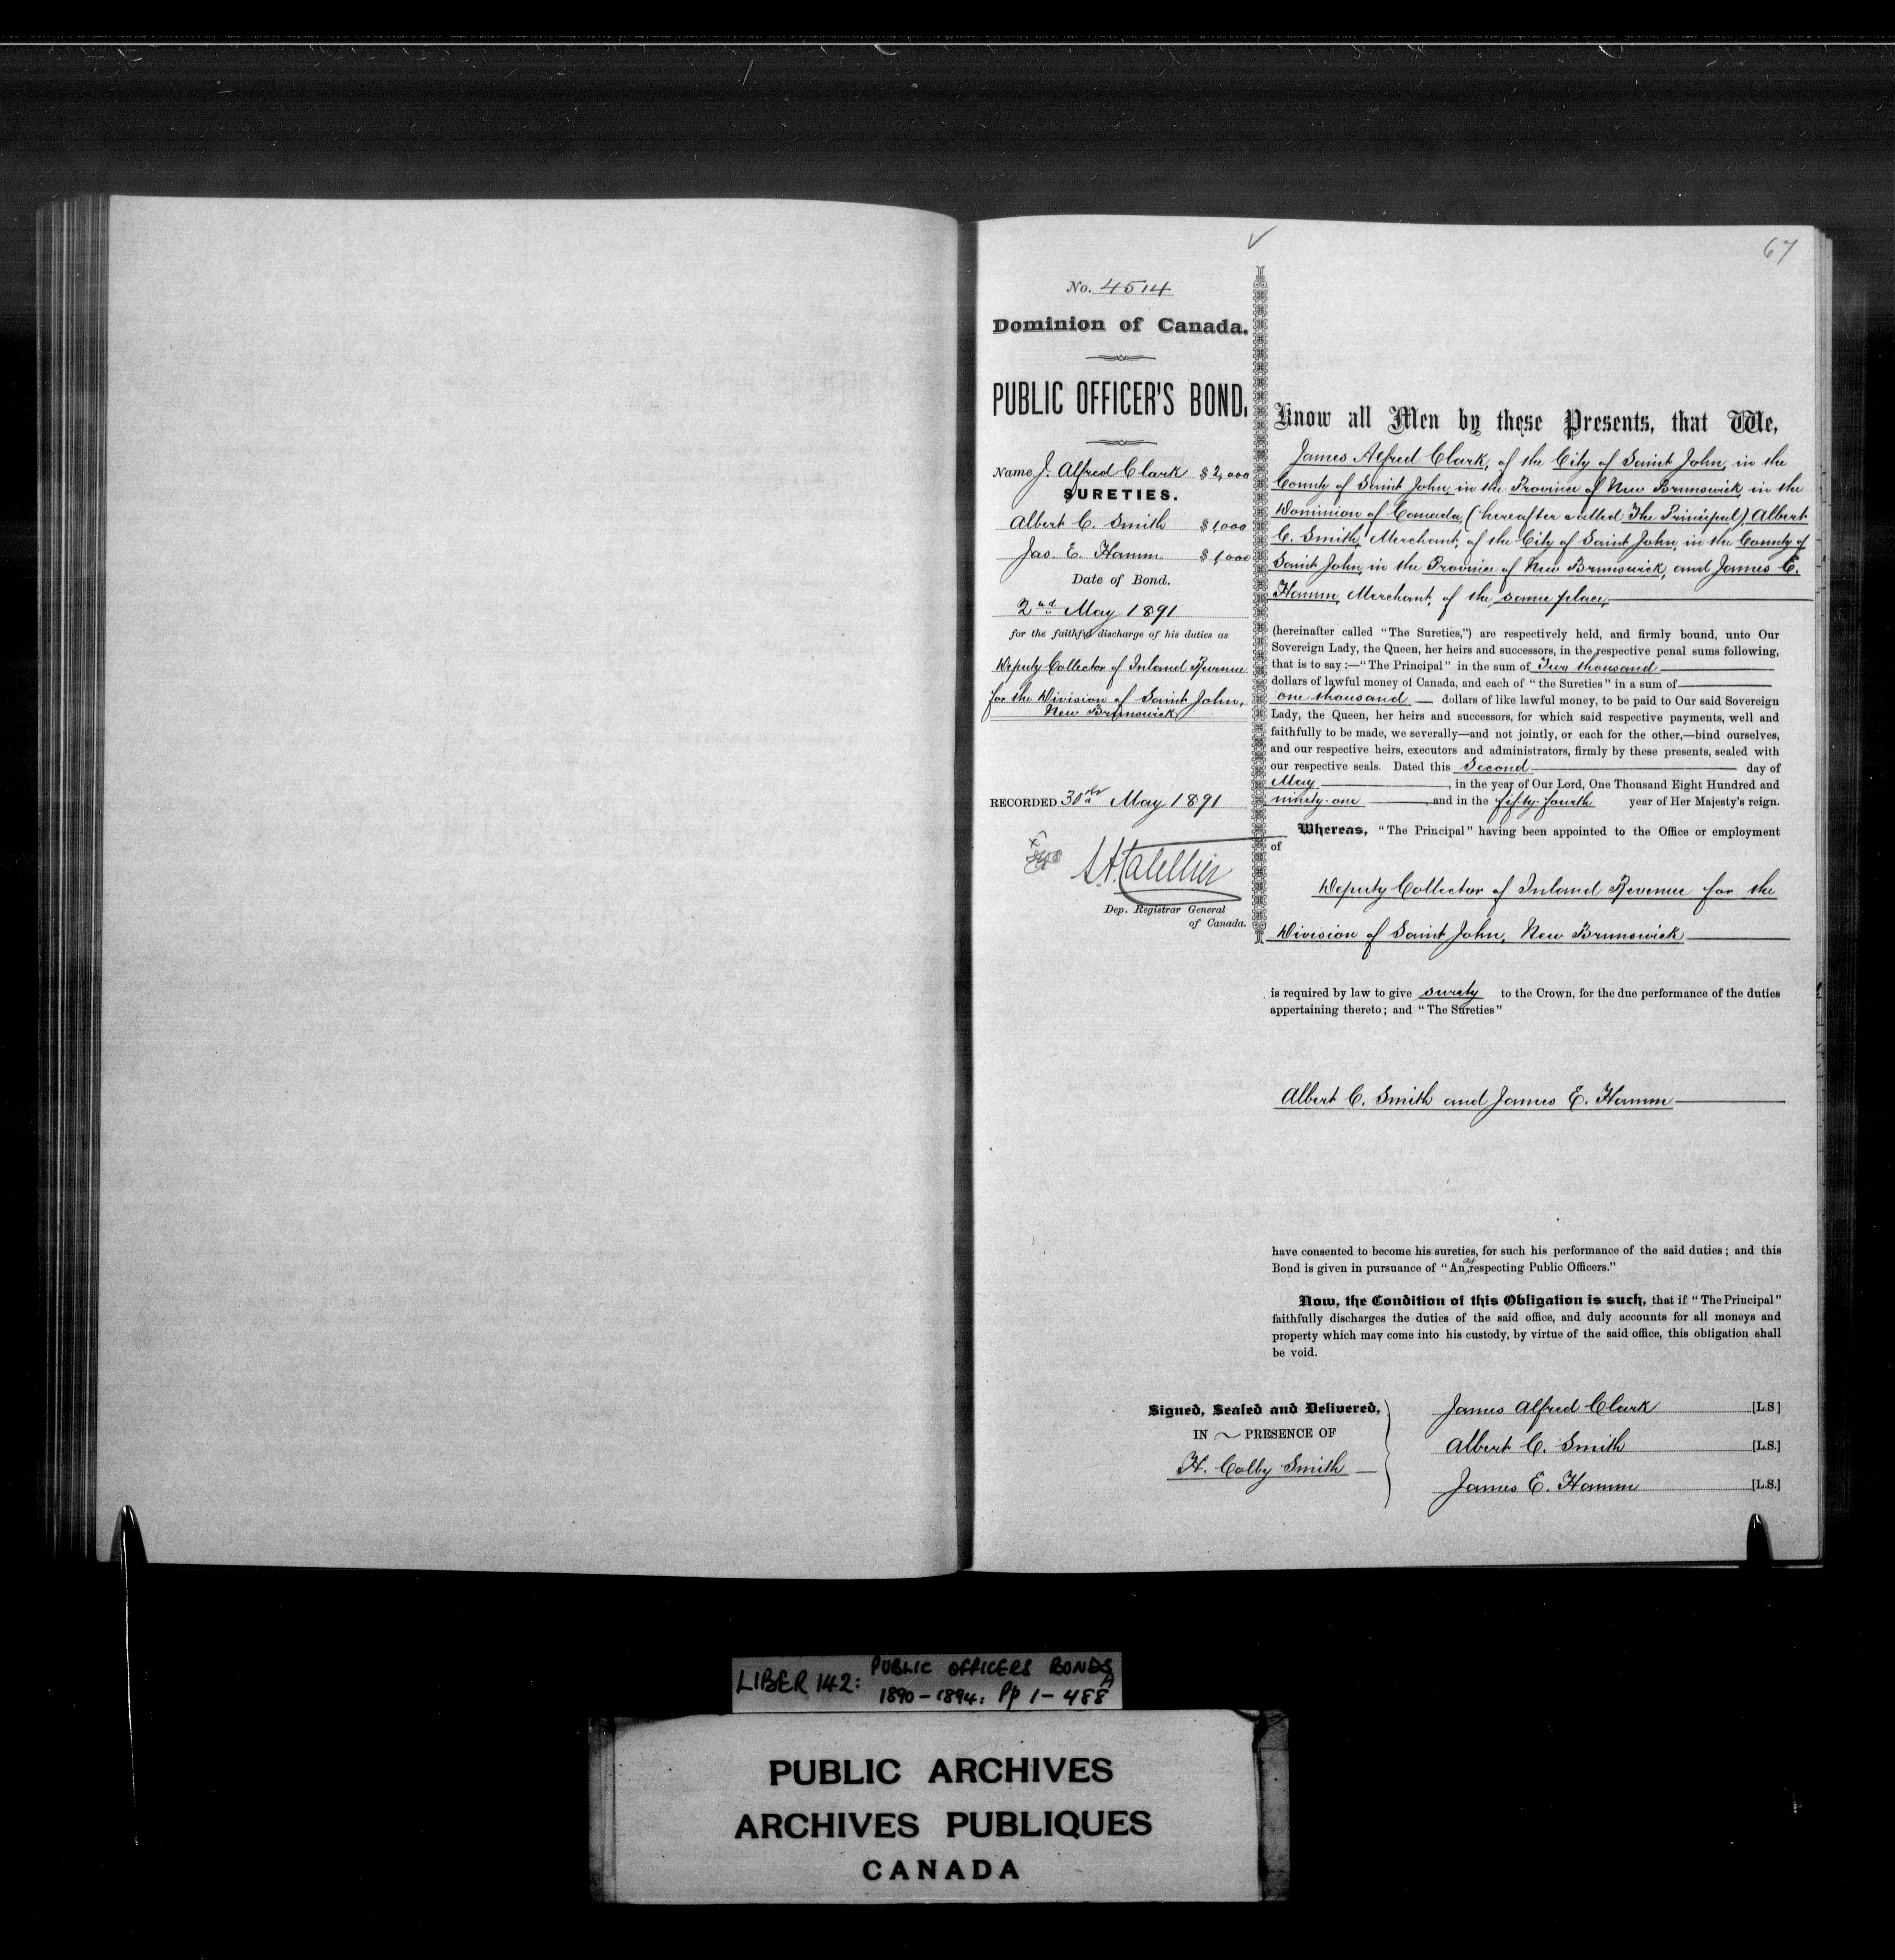 67
No. 4514
Dominion of Canada.
PUBLIC OFFICER'S BOND,
Name J. Alfred Clark $2,000
SURETIES.
Albert C. Smith $1,000
Jas. E. Hamm $1,000
Date of Bond.
2nd May 1891
for the faithful discharge of his duties as
Deputy Collector of Inland Revenue
for the Division of Saint John,
New Brunswick
RECORDED 30th May 1891
Dep. Registrar General
of Canada.
Know all Men by these Presents, that We,
James Alfred Clark, of the City of Saint John, in the
County of Saint John, in the Province of New Brunswick, in the
Dominion of Canada (hereafter called The Principal), Albert
C. Smith, Merchant, of the City of Saint John, in the County of
Saint John, in the Province of New Brunswick, and James E.
Hamm, Merchant, of the same place,
(hereinafter called "The Sureties,") are respectively held, and firmly bound, unto Our
Sovereign Lady, the Queen, her heirs and successors, in the respective penal sums following,
that is to say :—"The Principal" in the sum of Two thousand
dollars of lawful money of Canada, and each of "the Sureties" in a sum of
one thousand — dollars of like lawful money, to be paid to Our said Sovereign
Lady, the Queen, her heirs and successors, for which said respective payments, well and
faithfully to be made, we severally—and not jointly, or each for the other,—bind ourselves,
and our respective heirs, executors and administrators, firmly by these presents, sealed with
our respective seals. Dated this Second day of
May, in the year of Our Lord, One Thousand Eight Hundred and
ninety-one, and in the fifty-fourth year of Her Majesty's reign.
Whereas, "The Principal" having been appointed to the Office or employment
of
Deputy Collector of Inland Revenue for the
Division of Saint John, New Brunswick
is required by law to give surety to the Crown, for the due performance of the duties
appertaining thereto; and "The Sureties"
Albert C. Smith and James E. Hamm
have consented to become his sureties, for such his performance of the said duties; and this
Bond is given in pursuance of "An act respecting Public Officers."
Now, the Condition of this Obligation is such, that if "The Principal"
faithfully discharges the duties of the said office, and duly accounts for all moneys and
property which may come into his custody, by virtue of the said office, this obligation shall
be void.
Signed, Sealed and Delivered,
IN PRESENCE OF
H. Colby Smith
James Alfred Clark [L.S]
Albert C. Smith [L.S.]
James E. Hamm [L.S.]
LIBER 142: PUBLIC OFFICERS BONDS
1890-1894: Pp 1-488A
PUBLIC ARCHIVES
ARCHIVES PUBLIQUES
CANADA